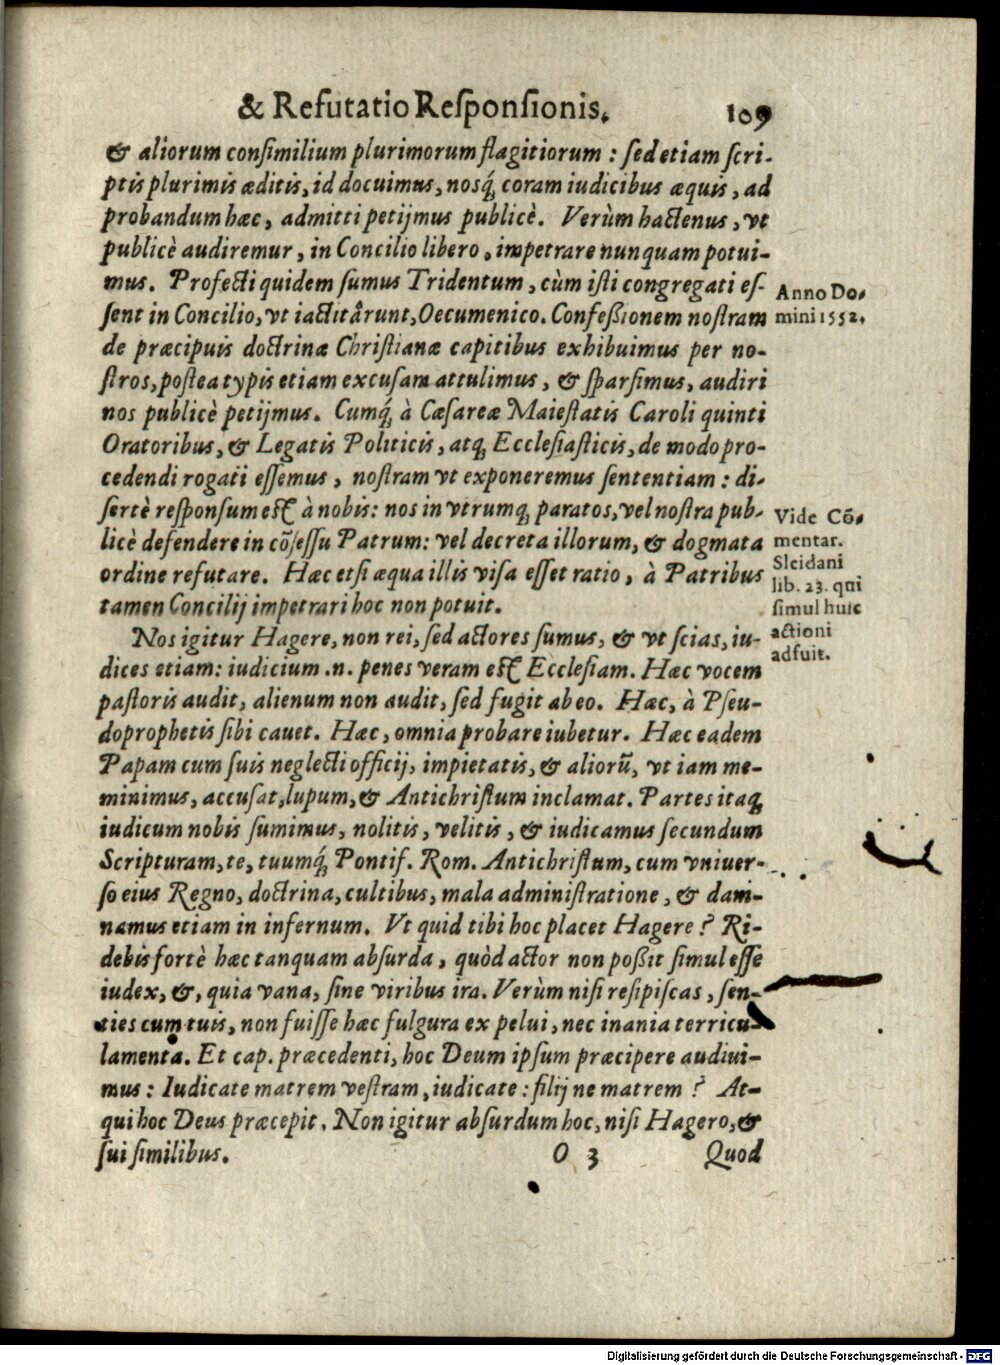 & Refutatio Reſponſionis. 109
& aliorum conſimilium plurimorum flagitiorum : ſed etiam ſcri-
ptis plurimis æditis, id docuimus, nosq́; coram iudicibus æquis, ad
probandum hæc, admitti petijmus publicè. Verùm hactenus, vt
publicè audiremur, in Concilio libero, impetrare nunquam potui-
mus. Profecti quidem ſumus Tridentum, cùm iſti congregati eſ-
ſent in Concilio, vt iactitârunt, Oecumenico. Confeßionem noſtram
de præcipuis doctrinæ Chriſtianæ capitibus exhibuimus per no-
ſtros, poſtea typis etiam excuſam attulimus, & ſparſimus, audiri
nos publicè petijmus. Cumq́; à Cæſareæ Maieſtatis Caroli quinti
Oratoribus, & Legatis Politicis, atq; Eccleſiaſticis, de modo pro-
cedendi rogati eſſemus, noſtram vt exponeremus ſententiam : di-
ſertè reſponſum eſt à nobis: nos in vtrumq; paratos, vel noſtra pub-
licè defendere in cõſeſſu Patrum: vel decreta illorum, & dogmata
ordine refutare. Hæc etſi æqua illis viſa eſſet ratio, à Patribus
tamen Concilij impetrari hoc non potuit.
Anno Do-
mini 1552.
Vide Cõ-
mentar.
Sleidani
lib. 23. qui
ſimul huic
actioni
adfuit.
Nos igitur Hagere, non rei, ſed actores ſumus, & vt ſcias, iu-
dices etiam: iudicium .n. penes veram eſt Eccleſiam. Hæc vocem
paſtoris audit, alienum non audit, ſed fugit ab eo. Hæc, à Pſeu-
doprophetis ſibi cauet. Hæc, omnia probare iubetur. Hæc eadem
Papam cum ſuis neglecti officij, impietatis, & aliorũ, vt iam me-
minimus, accuſat, lupum, & Antichriſtum inclamat. Partes itaq;
iudicum nobis ſumimus, nolitis, velitis, & iudicamus ſecundum
Scripturam, te, tuumq́; Pontif. Rom. Antichriſtum, cum vniuer-
ſo eius Regno, doctrina, cultibus, mala adminiſtratione, & dam-
namus etiam in infernum. Vt quid tibi hoc placet Hagere? Ri-
debis fortè hæc tanquam abſurda, quòd actor non poßit ſimul eſſe
iudex, &, quia vana, ſine viribus ira. Verùm niſi reſipiſcas, ſen-
ties cum tuis, non fuiſſe hæc fulgura ex pelui, nec inania terricu-
lamenta. Et cap. præcedenti, hoc Deum ipſum præcipere audiui-
mus : Iudicate matrem veſtram, iudicate : filij ne matrem? At-
qui hoc Deus præcepit. Non igitur abſurdum hoc, niſi Hagero, &
ſui ſimilibus.
O 3 Quod
Digitalisierung gefördert durch die Deutsche Forschungsgemeinschaft - DFG